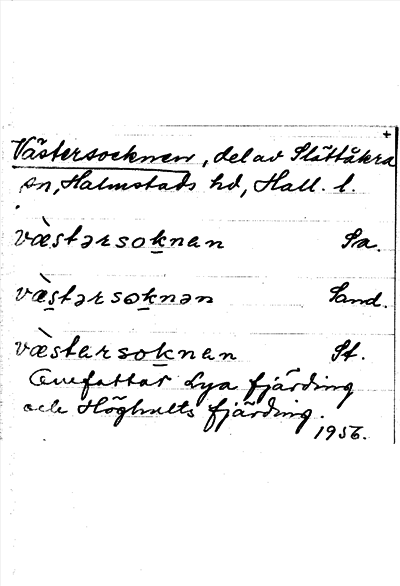 +
Västersocknen, del av Slättåkra
sn, Halmstads hd, Hall. l.
væ̀stərsoknan Sa.
væ̀stərsoknən Sand.
væ̀starsoknan St.
Omfattar Lya fjärding
och Höghults fjärding.
1956.